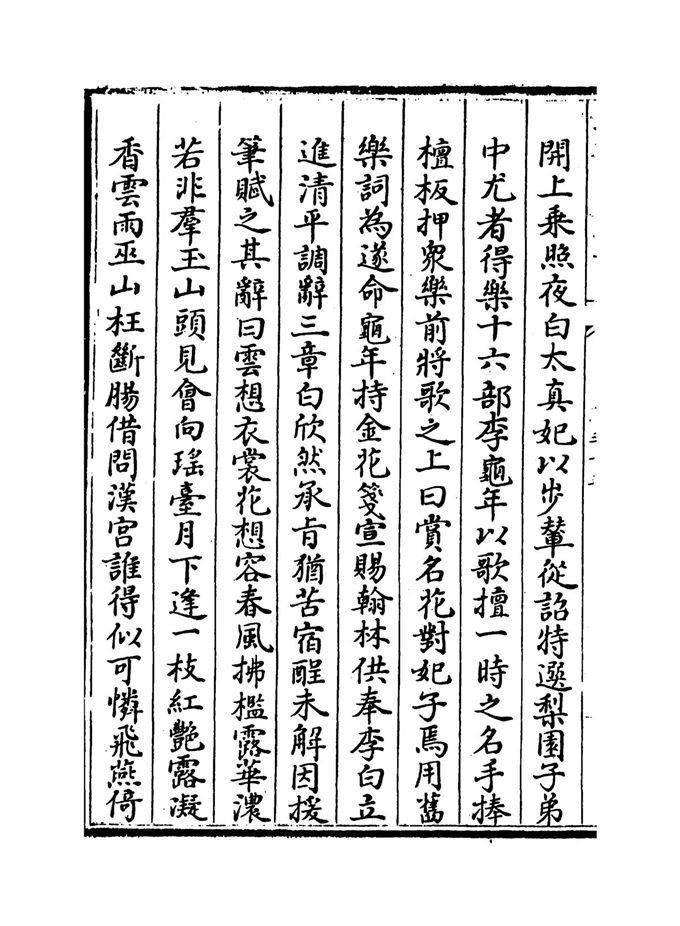 開上乗照夜白太真妃以步輦從詔特選梨園子弟
中尤者得樂十六部李龜年以歌擅一時之名手捧
檀板押衆樂前將歌之上曰賞名花對妃子焉用舊
樂詞為遂命龜年持金花箋宣賜翰林供奉李白立
進清平調辭三章白欣然承旨猶苦宿酲未解因援
筆賦之其辭曰雲想衣裳花想容春風拂檻露華濃
若非羣玉山頭見會向瑶臺月下逢一枝紅艷露凝
香雲雨巫山枉斷腸借問漢宮誰得似可憐飛燕倚